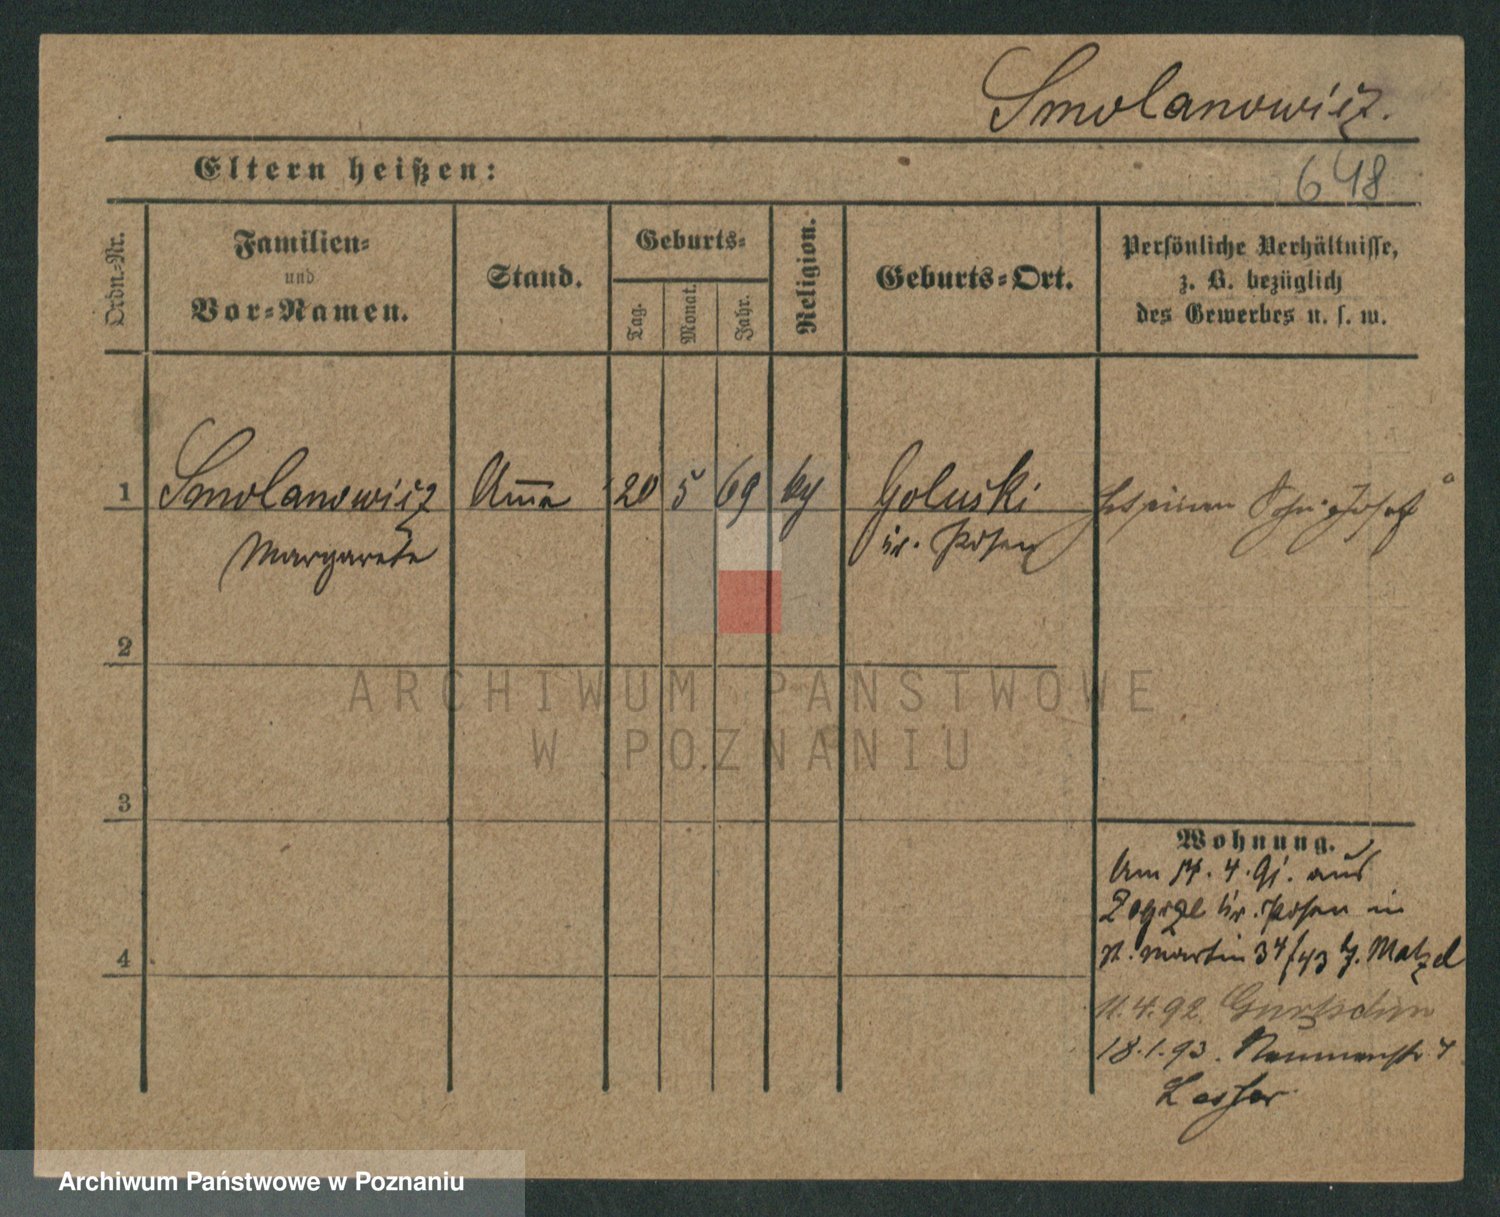 Smolanowicz.
648
Eltern heißen:
Ordn.-Nr.
Familien-
und
Vor-Namen.
Stand.
Geburts-
Tag.
Monat.
Jahr.
Religion.
Geburts-Ort.
Persönliche Verhältnisse,
z. B. bezüglich
des Gewerbes u. s. w.
1 Smolanowicz Am̅e 20 5 69 Goluski
Margarete Kr. Posen
2
ARCHIWUM PAŃSTWOWE
W POZNANIU
3
4
Wohnung.
Am 14. 4. 91. aus
Kr. Posen in
St. Martin 34/43 b.
11.4.92. Gurtschin
18.1.93.
Archiwum Państwowe w Poznaniu